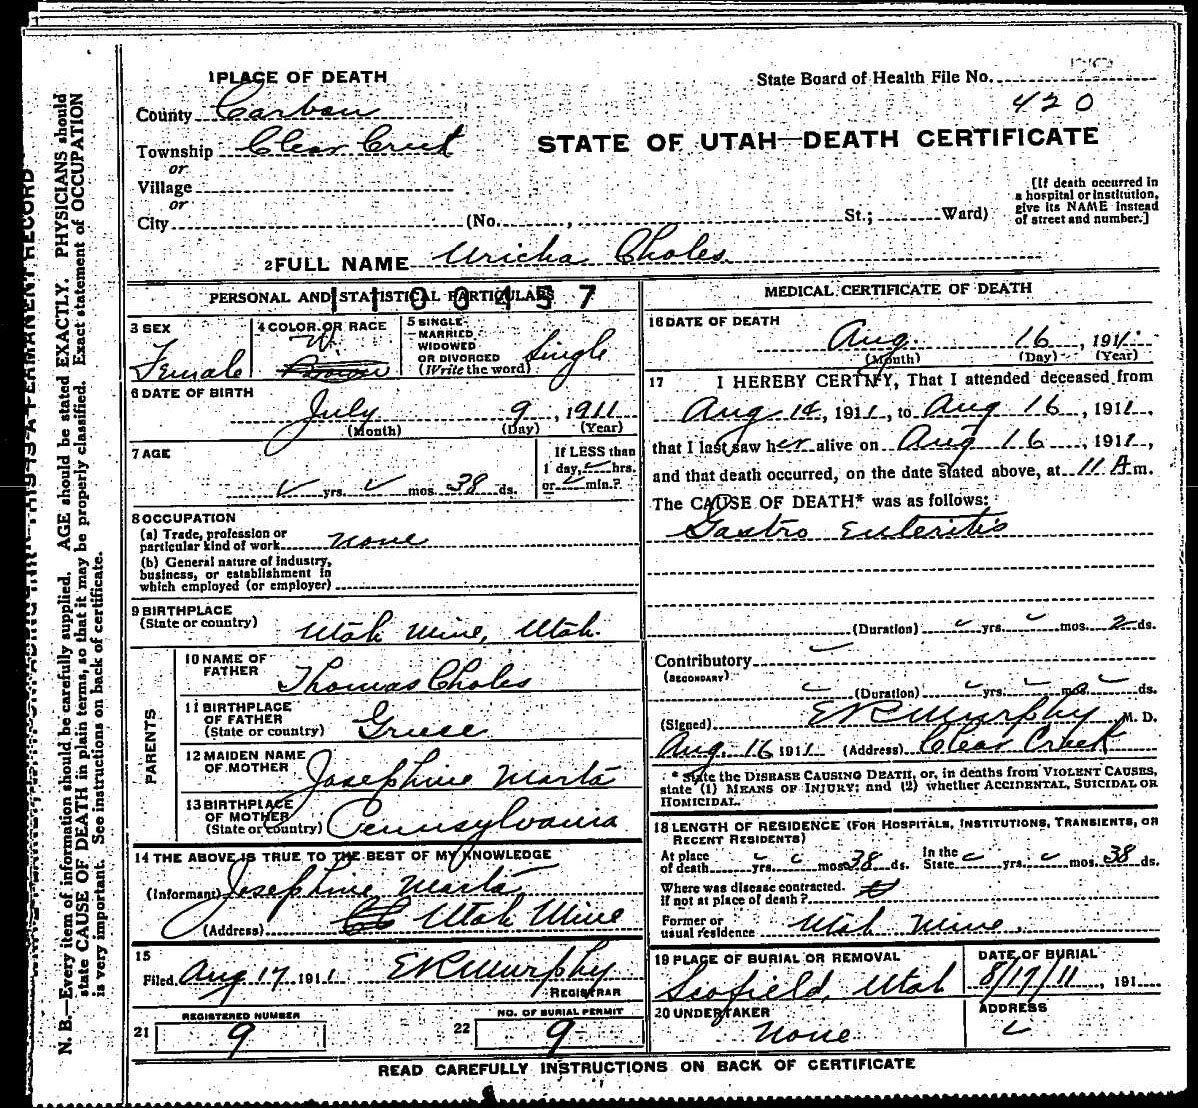 1 PLACE OF DEATH
State Board of Health File No.
County Carbon
420
Township Clear Creek
STATE OF UTAH—DEATH CERTIFICATE
or
Village
or
City (No. , St.; Ward)
[If death occurred in
a hospital or institution,
give its NAME instead
of street and number.]
2 FULL NAME Uricha Choles
PERSONAL AND STATISTICAL PARTICULARS
1100457
3 SEX
Female
4 COLOR OR RACE
W
5 SINGLE
MARRIED
WIDOWED
OR DIVORCED
(Write the word)
Single
6 DATE OF BIRTH
July 9, 1911
(Month) (Day) (Year)
7 AGE
yrs. mos. 38 ds.
If LESS than
1 day, hrs.
or min.?
8 OCCUPATION
(a) Trade, profession or
particular kind of work none
(b) General nature of industry,
business, or establishment in
which employed (or employer)
9 BIRTHPLACE
(State or country)
Utah Mine, Utah.
PARENTS
10 NAME OF
FATHER
Thomas Choles
11 BIRTHPLACE
OF FATHER
(State or country)
Griese
12 MAIDEN NAME
OF MOTHER
Josephine Marta
13 BIRTHPLACE
OF MOTHER
(State or country)
Pennsylvania
14 THE ABOVE IS TRUE TO THE BEST OF MY KNOWLEDGE
(Informant) Josephine Marta
(Address) Utah Mine
15
Filed Aug 17 1911 ERMurphy
REGISTRAR
21
REGISTERED NUMBER
9
22
NO. OF BURIAL PERMIT
9
MEDICAL CERTIFICATE OF DEATH
16 DATE OF DEATH
Aug. 16, 1911
(Month) (Day) (Year)
17 I HEREBY CERTIFY, That I attended deceased from
Aug 14, 1911, to Aug 16, 1911,
that I last saw her alive on Aug 16, 1911,
and that death occurred, on the date stated above, at 11 A m.
The CAUSE OF DEATH* was as follows:
Gastro Enteritis
(Duration) yrs. mos. 2 ds.
Contributory
(SECONDARY)
(Duration) yrs. mos. ds.
(Signed) ERMurphy M. D.
Aug. 16 1911 (Address) Clear Creek
* State the DISEASE CAUSING DEATH, or, in deaths from VIOLENT CAUSES,
state (1) MEANS OF INJURY; and (2) whether ACCIDENTAL, SUICIDAL OR
HOMICIDAL.
18 LENGTH OF RESIDENCE (FOR HOSPITALS, INSTITUTIONS, TRANSIENTS, OR
RECENT RESIDENTS)
At place
of death yrs. mos. 38 ds.
In the
State yrs. mos. 38 ds.
Where was disease contracted.
if not at place of death?
Former or
usual residence Utah Mine.
19 PLACE OF BURIAL OR REMOVAL
Scofield, Utah
DATE OF BURIAL
8/17/11, 191
20 UNDERTAKER
None
ADDRESS
READ CAREFULLY INSTRUCTIONS ON BACK OF CERTIFICATE
N. B.—Every item of information should be carefully supplied. AGE should be stated EXACTLY. PHYSICIANS should
state CAUSE OF DEATH in plain terms, so that it may be properly classified. Exact statement of OCCUPATION
is very important. See instructions on back of certificate.